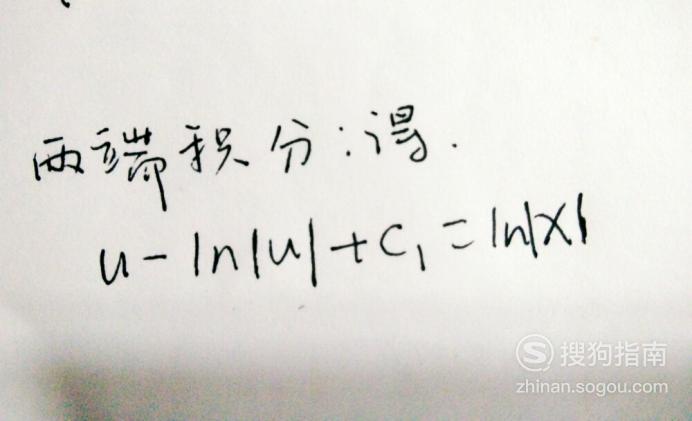 两端积分:得.
u-ln|u|+C₁=ln|x|
搜狗指南
zhinan.sogou.com